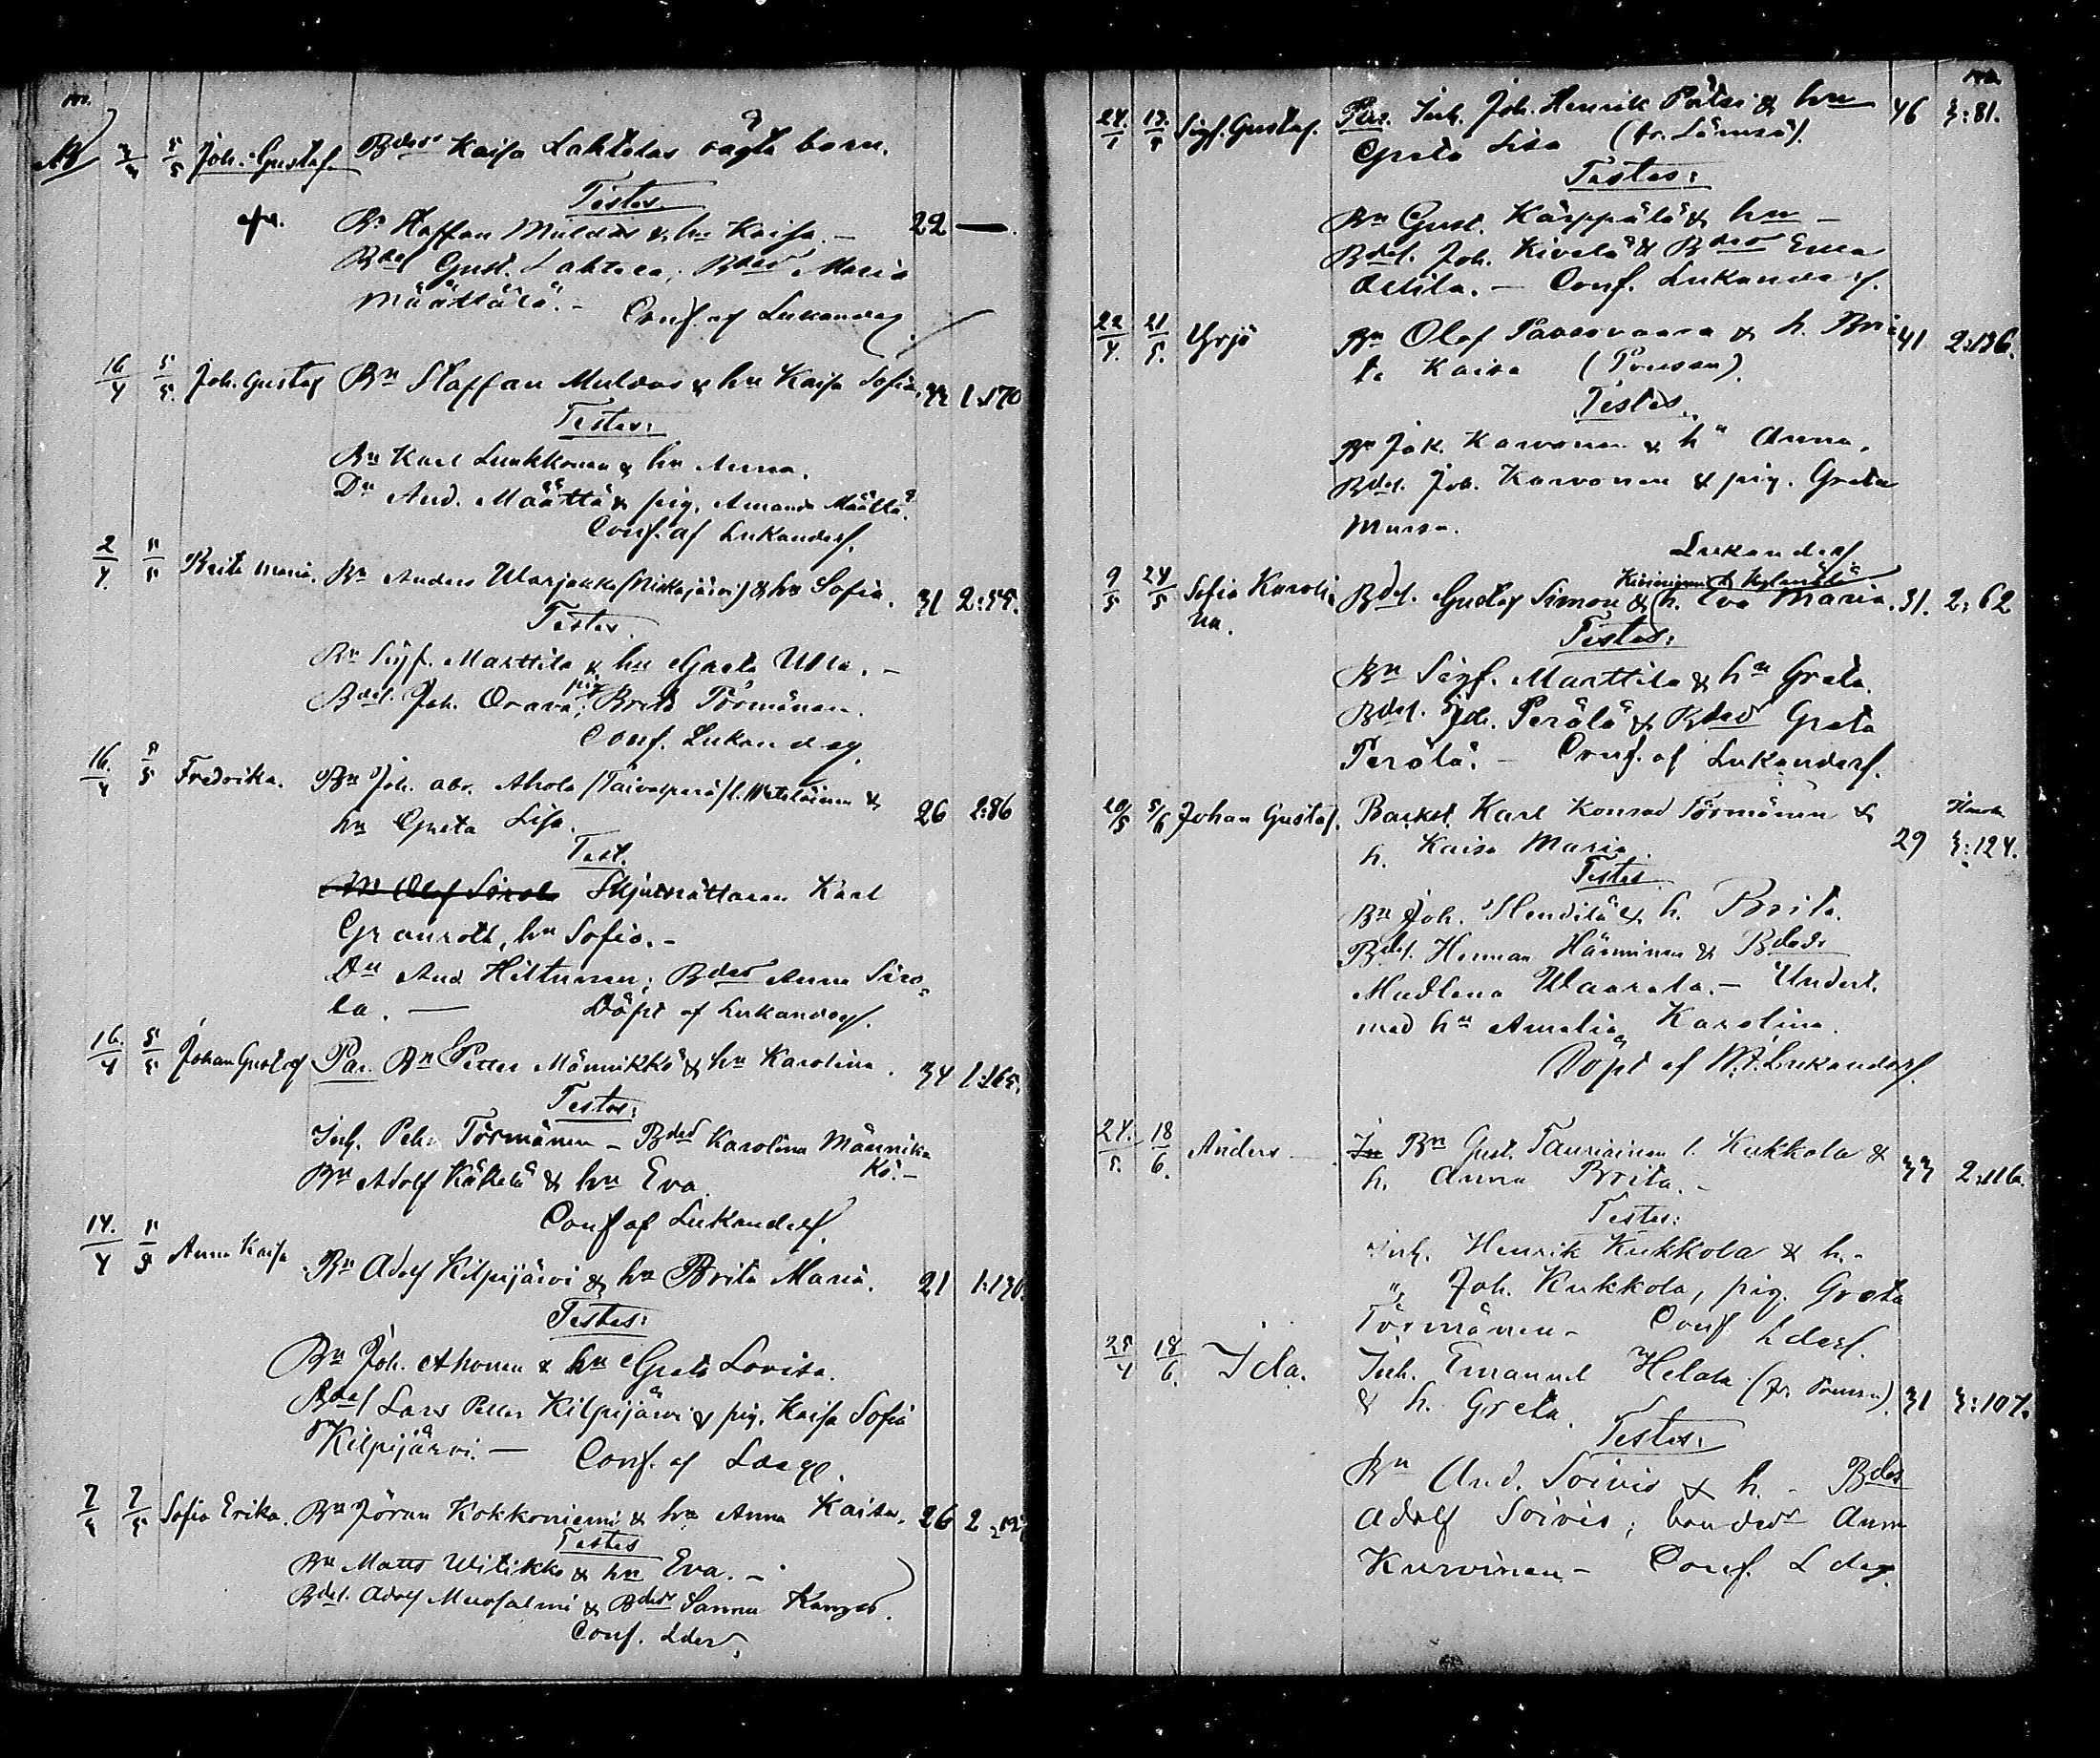 Joh. Gustaf. Bdr Kaisa Lahtelas oägta barn.
Testes
Bn Staffan Muldas & hu Kaisa. — 22 —
Bdes Gust. Lahtela; Bdr Maria
Määttälä. – Conf. af Lukander.
16/4 5/5 Joh. Gustaf Bn Staffan Muldas & hu Kaisa Sofia. 1:170
Testes:
Bn Karl Lunkkonen & hu Anna.
Dn And. Määttä & pig. Amanda Määttä.
Conf. af Lukander.
2/4 5/5 Brita Maria. Bn Anders Warjakka (Niskajärvi) & hu Sofia. 31 2:55.
Testes
Bn Sigf. Marttila & hu Greta Ulla. –
Bdes. Joh. Orava; pig. Brita Törmänen.
Conf. Lukander.
16/4 5/5 Fredrika. Bn Joh. Abr. Ahola (Taivalperä) l. & 26 2:86
hu Greta Lisa.
Test.
Bn Olof Sirola Skjutsrättaren Karl
Granroth, hu Sofia. –
Dn And Hiltunen; Bdr Anna Siro-
la. — Döpt af Lukander.
16/4 5/5 Johan Gustaf Par. Bn Petter Männikkö & hu Karolina. 34 1:165.
Testes:
Inh. Pehr Törmänen – Bdr Karolina Männik-
kö. –
Bn Adolf Käkelä & hu Eva.
Conf af Lukander.
14/4 5/5 Anna Kaisa Bn Adolf Kilpijärvi & hu Brita Maria. 21 1:130.
Testes:
Bn Joh. Ahonen & hu Greta Lovisa.
Bdes Lars Petter Kilpijärvi & pig. Kaisa Sofia
Kilpijärvi. — Conf. af
7/5 Sofia Erika. Bn Jöran Kokkoniemi & hu Anna Kaisa. 26 2:
Testes
Bn Matts Witikko & hu Eva. –
Bdes. Adolf Mursalmi & Bdr Sanna Kangas.
Conf. Lder.
Sigf. Gustaf. Par. Inh. Joh. Henrik Pätsi & hu 46 3:81.
Greta Lisa (fr. Lämsä).
Testes:
Bn Gust. Karppälä & hu –
Bdes. Joh. Kivelä & Bdr Eva
Ollila. – Conf. Lukander.
22/4. 21/5. Yrjö Bn Olof Paavovaara & h. Bri- 41 2:136.
ta Kaisa (Pousu).
Testes.
Bn Jak. Karvonen & hu Anna.
Bdes. Joh. Karvonen & pig. Greta
Mursa.
Lukander
9/5 24/5 Sofia Karoli-
na. Bdes. Gustaf Simon & h. Eva Maria. 31. 2:62
Testes:
Bn Sigf. Marttila & hu Greta.
Bdes. Joh. Perälä & Bdr Greta
Perälä. – Conf. af Lukander.
20/5 5/6 Johan Gustaf. Backst. Karl Konrad Törmänen &
h. Kaisa Maria. 29 3:124.
Testes
Bn Joh. & h. Brita.
Bdes. Herman Hänninen & Bdr
Madlena Waarala. – Undert.
med hu Amalia Karolina.
Döpt af W. F. Lukander.
24/5. 18/6. Anders Bn Gust. Tauriainen l. Kukkola &
h. Anna Brita. – 33 2:116.
Testes:
Inh. Henrik Kukkola & h. –
„ Joh. Kukkola, pig. Greta
Törmänen – Conf Lder.
25/4 18/6. Ida. Inh. Emanuel Helala (fr. Pousu)
& h. Greta. 31 3:107.
Testes:
Bn And. Soivio & h. – Bdes
Adolf Soivio; bondedr Anna
Kurvinen – Conf. Lder.